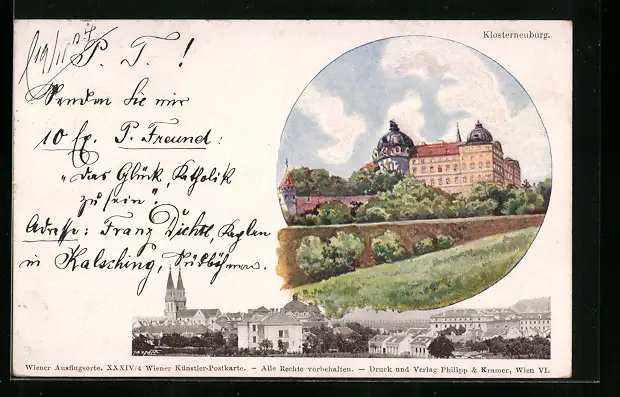 Klosterneuburg.
P. T. !
Senden Sie mir
10 Ex. P. Freund:
"Das Glück, Katholik
zu sein".
Adresse: Franz Dichtl, Kaplan
in Kalsching, Südböhmen.
Wiener Ausflugsorte. XXXIV/4 Wiener Künstler-Postkarte. – Alle Rechte vorbehalten. – Druck und Verlag Philipp & Kramer, Wien VI.